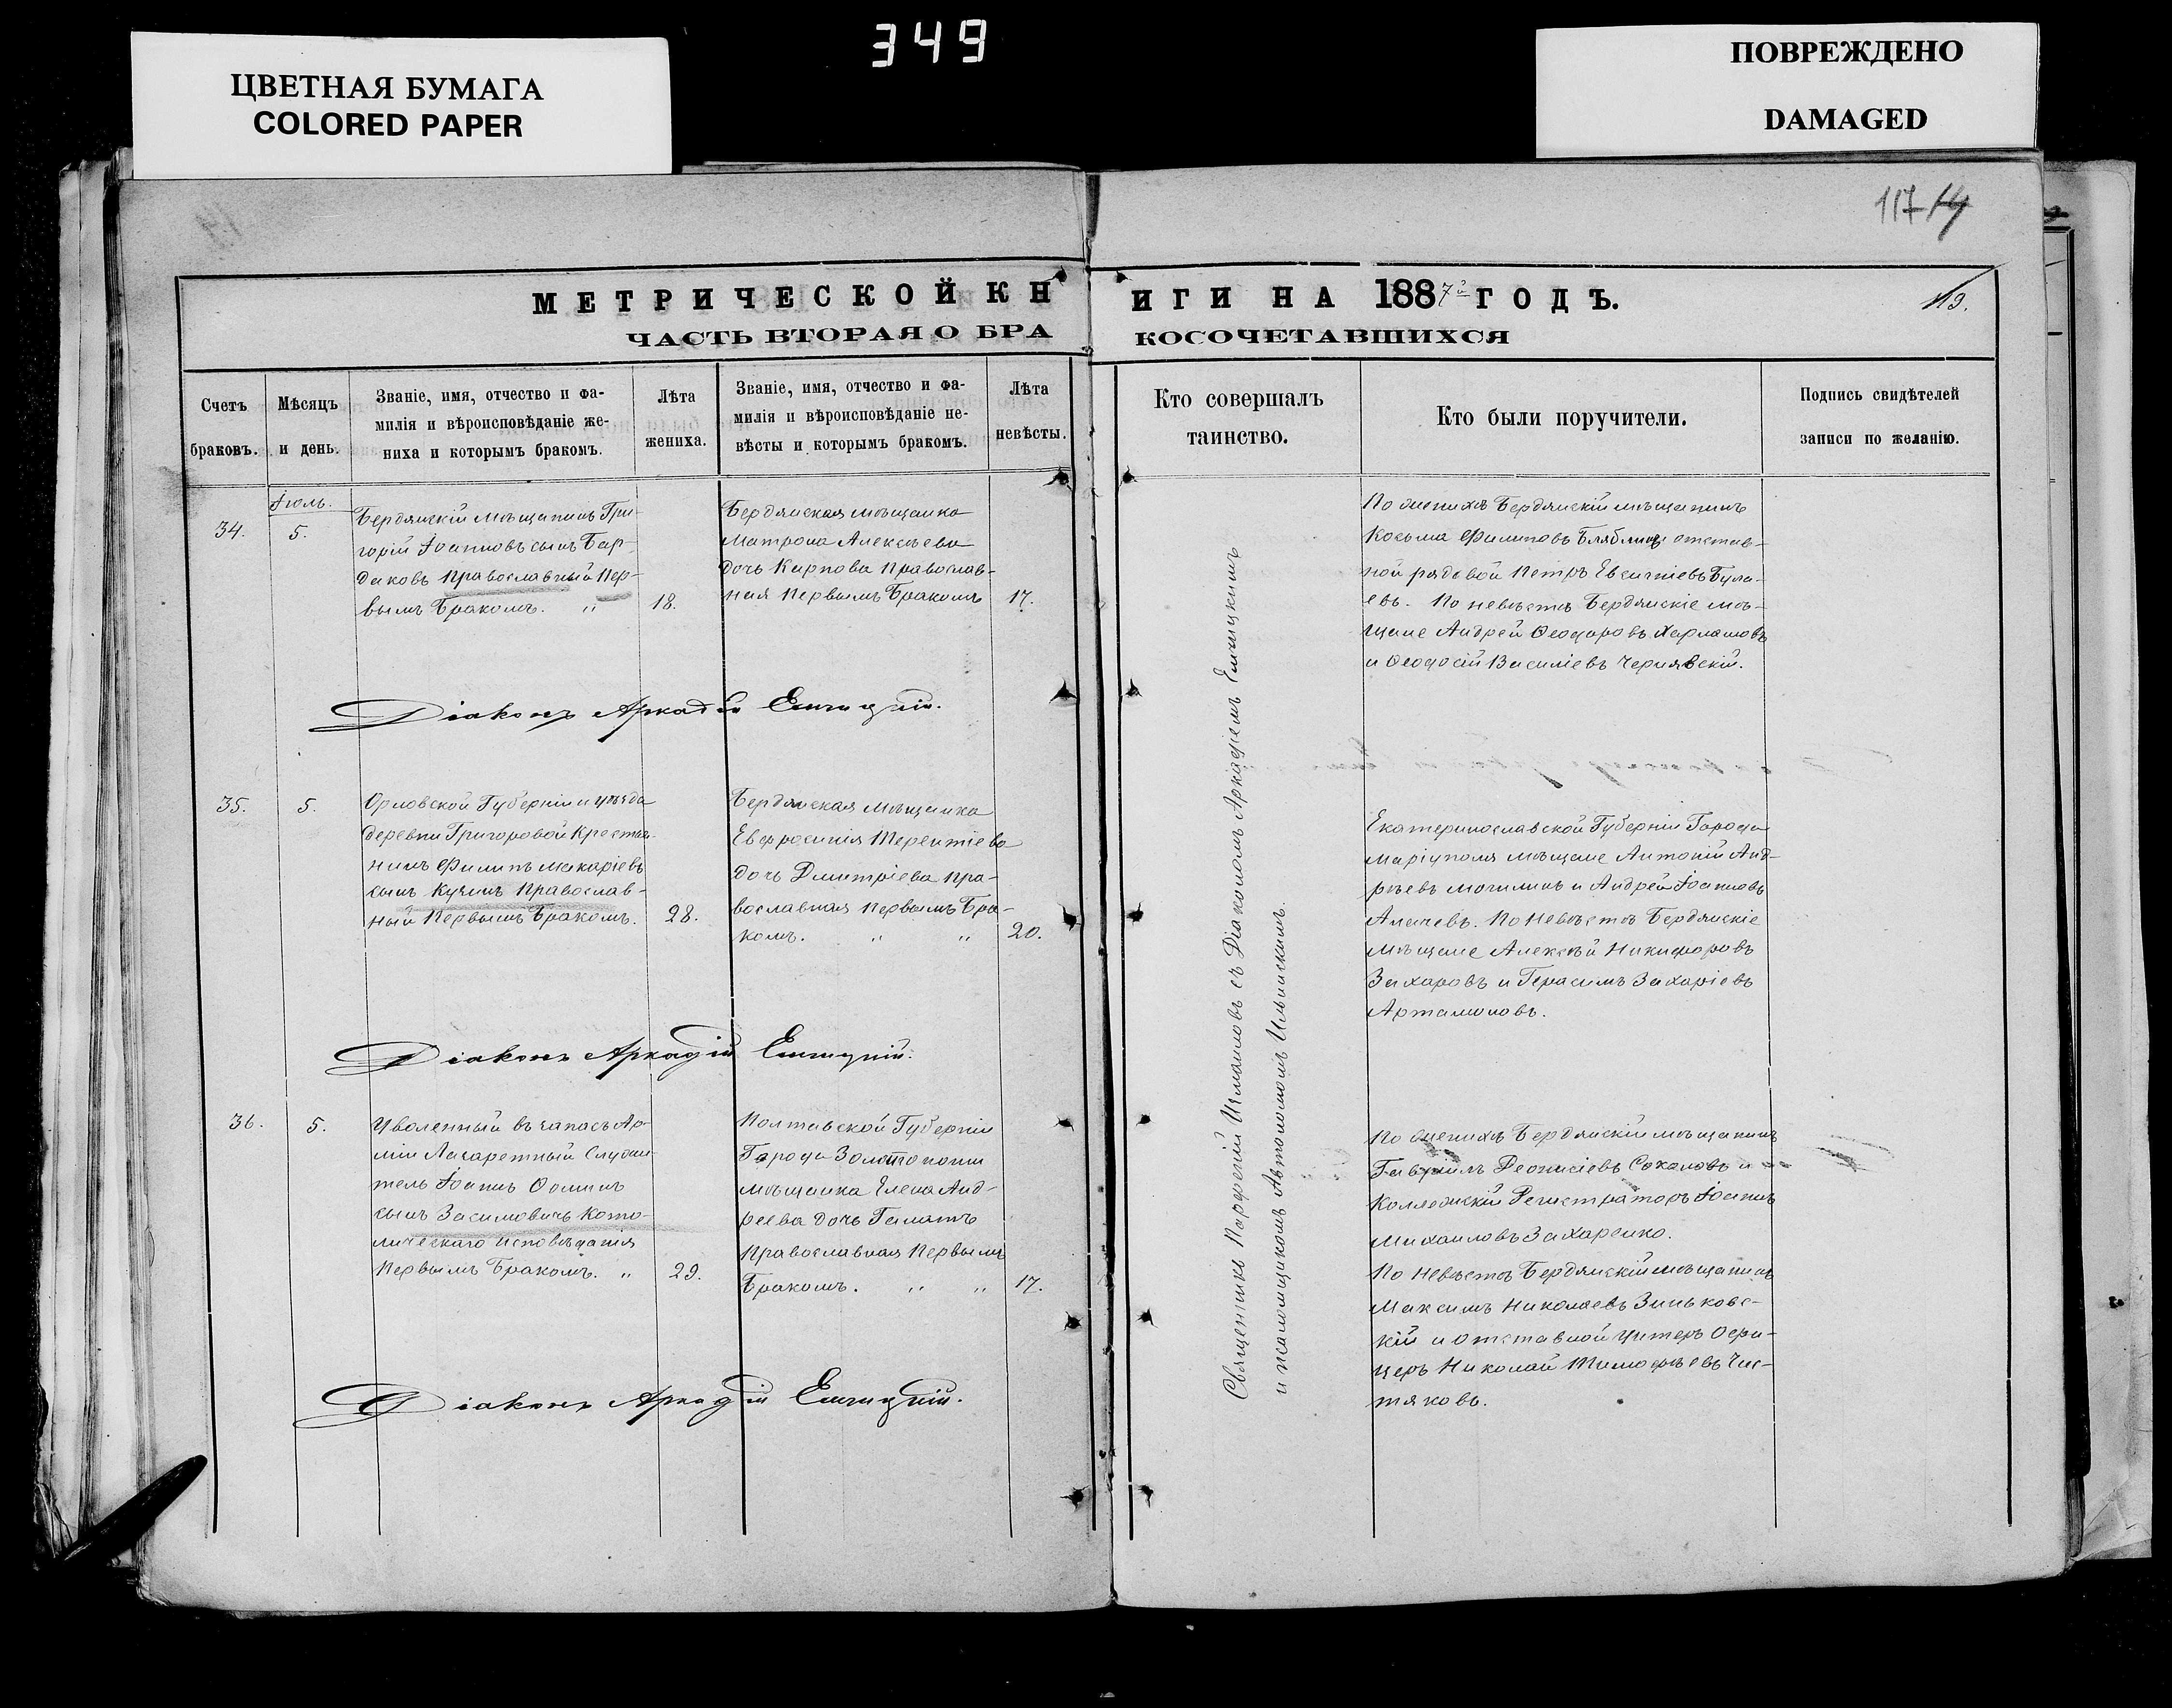 349
ЦВЕТНАЯ БУМАГА
COLORED PAPER
ПОВРЕЖДЕНО
DAMAGED
117 14
МЕТРИЧЕСКОЙ КН
ИГИ НА 1887й ГОДЪ.
119.
ЧАСТЬ ВТОРАЯ О БРА
КОСОЧЕТАВШИХСЯ
Счетъ
браковъ.
Мѣсяцъ
и день.
Званіе, имя, отчество и фа-
милія и вѣроисповѣданіе же-
ниха и которымъ бракомъ.
Лѣта
жениха.
Званіе, имя, отчество и фа-
милія и вѣроисповѣданіе не-
вѣсты и которымъ бракомъ.
Лѣта
невѣсты.
Кто совершалъ
таинство.
Кто были поручители.
Подпись свидѣтелей
записи по желанію.
34.
Іюль.
5.
Бердянскій мѣщанинъ Гри-
горій Іоанновъ сынъ Бар-
даковъ Православный Пер-
вымъ Бракомъ. "
18.
Бердянская мѣщанка
Матрона Алексѣева
дочь Карпова Православ-
ная Первымъ Бракомъ
17.
По женихѣ Бердянскій мѣщанинъ
Косьма Филиповъ отстав-
ной рядовой Петръ Евсигніевъ Була-
евъ. По невѣстѣ Бердянскіе мѣ-
щане Андрей Ѳеодоровъ Харламовъ
и Ѳеодосій Василіевъ Чернявскій.
Діаконъ Аркадій Емницкій.
35.
5.
Орловской Губерніи и уѣзда
деревни Григоровой Крестья-
нинъ Филипъ Макаріевъ
сынъ Кузинъ Православ-
ный Первымъ Бракомъ.
28.
Бердянская Мѣщанка
Евфросинія Терентіева
дочь Дмитріева Пра-
вославная Первымъ Бра-
комъ. " "
20.
Екатеринославской Губерніи Города
Маріуполя мѣщане Антоній Анд-
рѣевъ Могилинъ и Андрей Іоанновъ
Алачевъ. По Невѣстѣ Бердянскіе
Мѣщане Алексѣй Никифоровъ
Захаровъ и Герасимъ Захаріевъ
Артамоновъ.
Діаконъ Аркадій Емницкій.
36.
5.
Уволенный въ запасъ Ар-
міи Лазаретный Служи-
тель Іоаннъ Ѳоминъ
сынъ Засимовичъ Като-
лическаго исповѣданія
Первымъ Бракомъ. "
29.
Полтавской Губерніи
Города Золотоноши
мѣщанка Елена Анд-
реева дочь Галатъ
Православная Первымъ
Бракомъ. " "
17.
По женихѣ Бердянскій мѣщанинъ
Гавріилъ Деонисіевъ Сокаловъ и
Коллежскій Регистраторъ Іоаннъ
Михаиловъ Захаренко.
По Невѣстѣ Бердянскій мѣщанинъ
Максимъ Николаевъ Зиньковс-
кій и отставной Унтеръ Офи-
церъ Николай Тимофѣевъ Чис-
тяковъ.
Діаконъ Аркадій Емницкій.
Священникъ Парфеній Измаиловъ съ Діакономъ Аркадіемъ Емницкимъ
и псаломщикомъ Автономомъ Ильинскимъ.